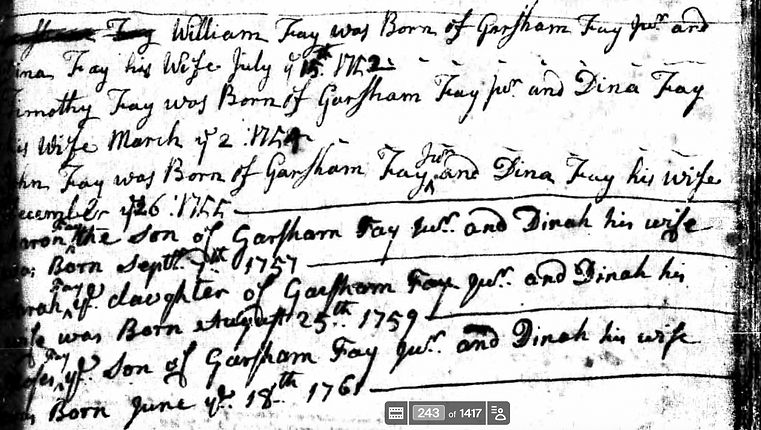 William Fay was Born of Garsham Fay Junr. and
Dina Fay his Wife July ye 15. 1752
Timothy Fay was Born of Garsham Fay Junr and Dina Fay
his Wife March ye 2 :1754
John Fay was Born of Garsham Fay Junr and Dina Fay his wife
December ye 26 : 1755
Aaron Fay the Son of Garsham Fay Junr. and Dinah his wife
was Born Septbr. 1757
Sarah Fay ye daughter of Garsham Fay Junr. and Dinah his
wife was Born August 25th 1759
Moses Fay ye Son of Garsham Fay Junr. and Dinah his wife
was Born June ye 18th 1761
243 of 1417